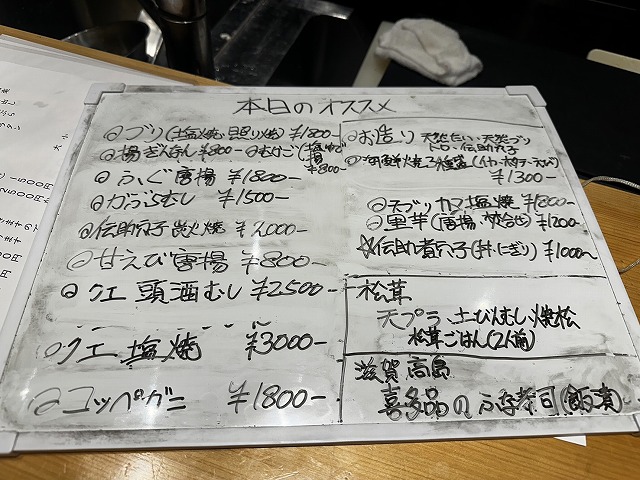 本日のオススメ
◎ブリ(塩焼・照り焼) ¥1800-
◎揚ぎんなん ¥800- ◎むかご(塩ゆで・揚) ¥800-
◎ふぐ唐揚 ¥1800-
◎かぶらむし ¥1500-
◎伝助穴子 炭火焼
◎甘えび唐揚 ¥800-
◎クエ 頭 酒むし ¥2500-
◎クエ 塩焼 ¥3000-
◎コッペガニ ¥1800-
◎お造り 天然たい・天然ブリ
トロ・伝助穴子
◎海鮮焼
¥1300-
◎天ブリカマ塩焼 ¥1800-
◎里芋(唐揚・炊合せ) ¥1200-
☆伝助煮穴子(丼・にぎり) ¥1000~
松茸
天プラ、土びんむし、焼松
松茸ごはん(2人前)
滋賀 高島
喜多品の ふな寿司(飯漬)